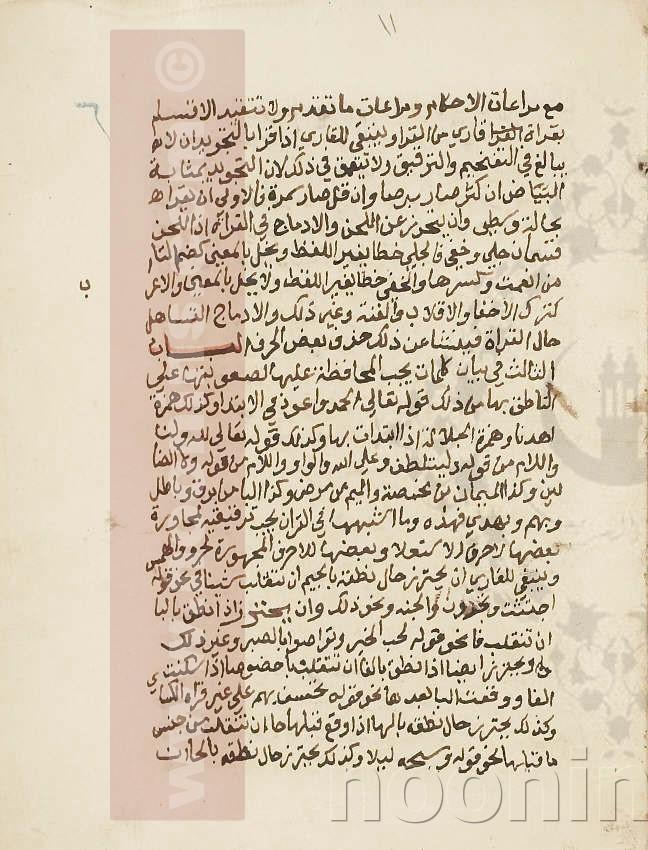 ١١
مع مراعات الاحكام ومراعات ما تقدم ولا تتقيد الاقسام
بقراة القرا قاري من القرا وينبغي للقاري اذا قرا بالتجويد ان لا
يبالغ في التفخيم والترقيق ولا في ذلك لان التجويد بمثابة
البياض ان كثر صار برصا وان قل صار سمرة فالاولي ان يقراه
بحالة وسطي وان يتحرز عن اللحن والادماج في القراة اذ اللحن
قسمان جلي وخفي فالجلي خطا يغير اللفظ ويخل بالمعني كضم التا
من انعمت وكسرها والخفي خطا يغير اللفظ ولا يخل بالمعني والاعراب
كترك الاخفا والاقلاب والغنة وغير ذلك والادماج التساهل
حال القراة فينشا عن ذلك حذف بعض الحرف البـــاب
الثالث في بيان كلمات يجب المحافظة عليها لصعوبتها علي
الناطق بها من ذلك قوله تعالي الحمد واعوذ في الابتدا وكذلك همزة
اهدنا وهمزة الجلالة اذا ابتدات بها وكذلك قوله تعالي لله ولنا
واللام من قوله وليتلطف وعلي الله والواو واللام من قوله ولا الضا
لين وكذا الميمان من مخمصة والميم من مرض وكذا البا من برق وباطل
وبهم وبهدي فهذه وما اشبهها في القران يجب ترقيقه لمجاورة
بعضها لاحرف الاستعلا وبعضها للاحرف المجهورة
وينبغي للقاري ان يحترز حال نطقه بالجيم ان تنقلب شينا في نحو قوله
اجتثت والجنه ونحو ذلك وان يحترز اذا نطق بالبا
ان تنقلب فا نحو قوله لحب الخير وتواصوا بالصبر وغير ذلك
ويحترز ايضا اذا نطق بالفا ان تنقلب با خصوصا اذا سكنت
الفا ووقعت البا بعدها نحو قوله نخسف بهم علي غير قراة الكساي
وكذلك يحترز حال نطقه بالها اذا وقع قبلها حا ان تنقلب من جنس
ما قبلها نحو قوله وسبحه ليلا وكذلك يحترز حال نطقه بالحا ان
noonin